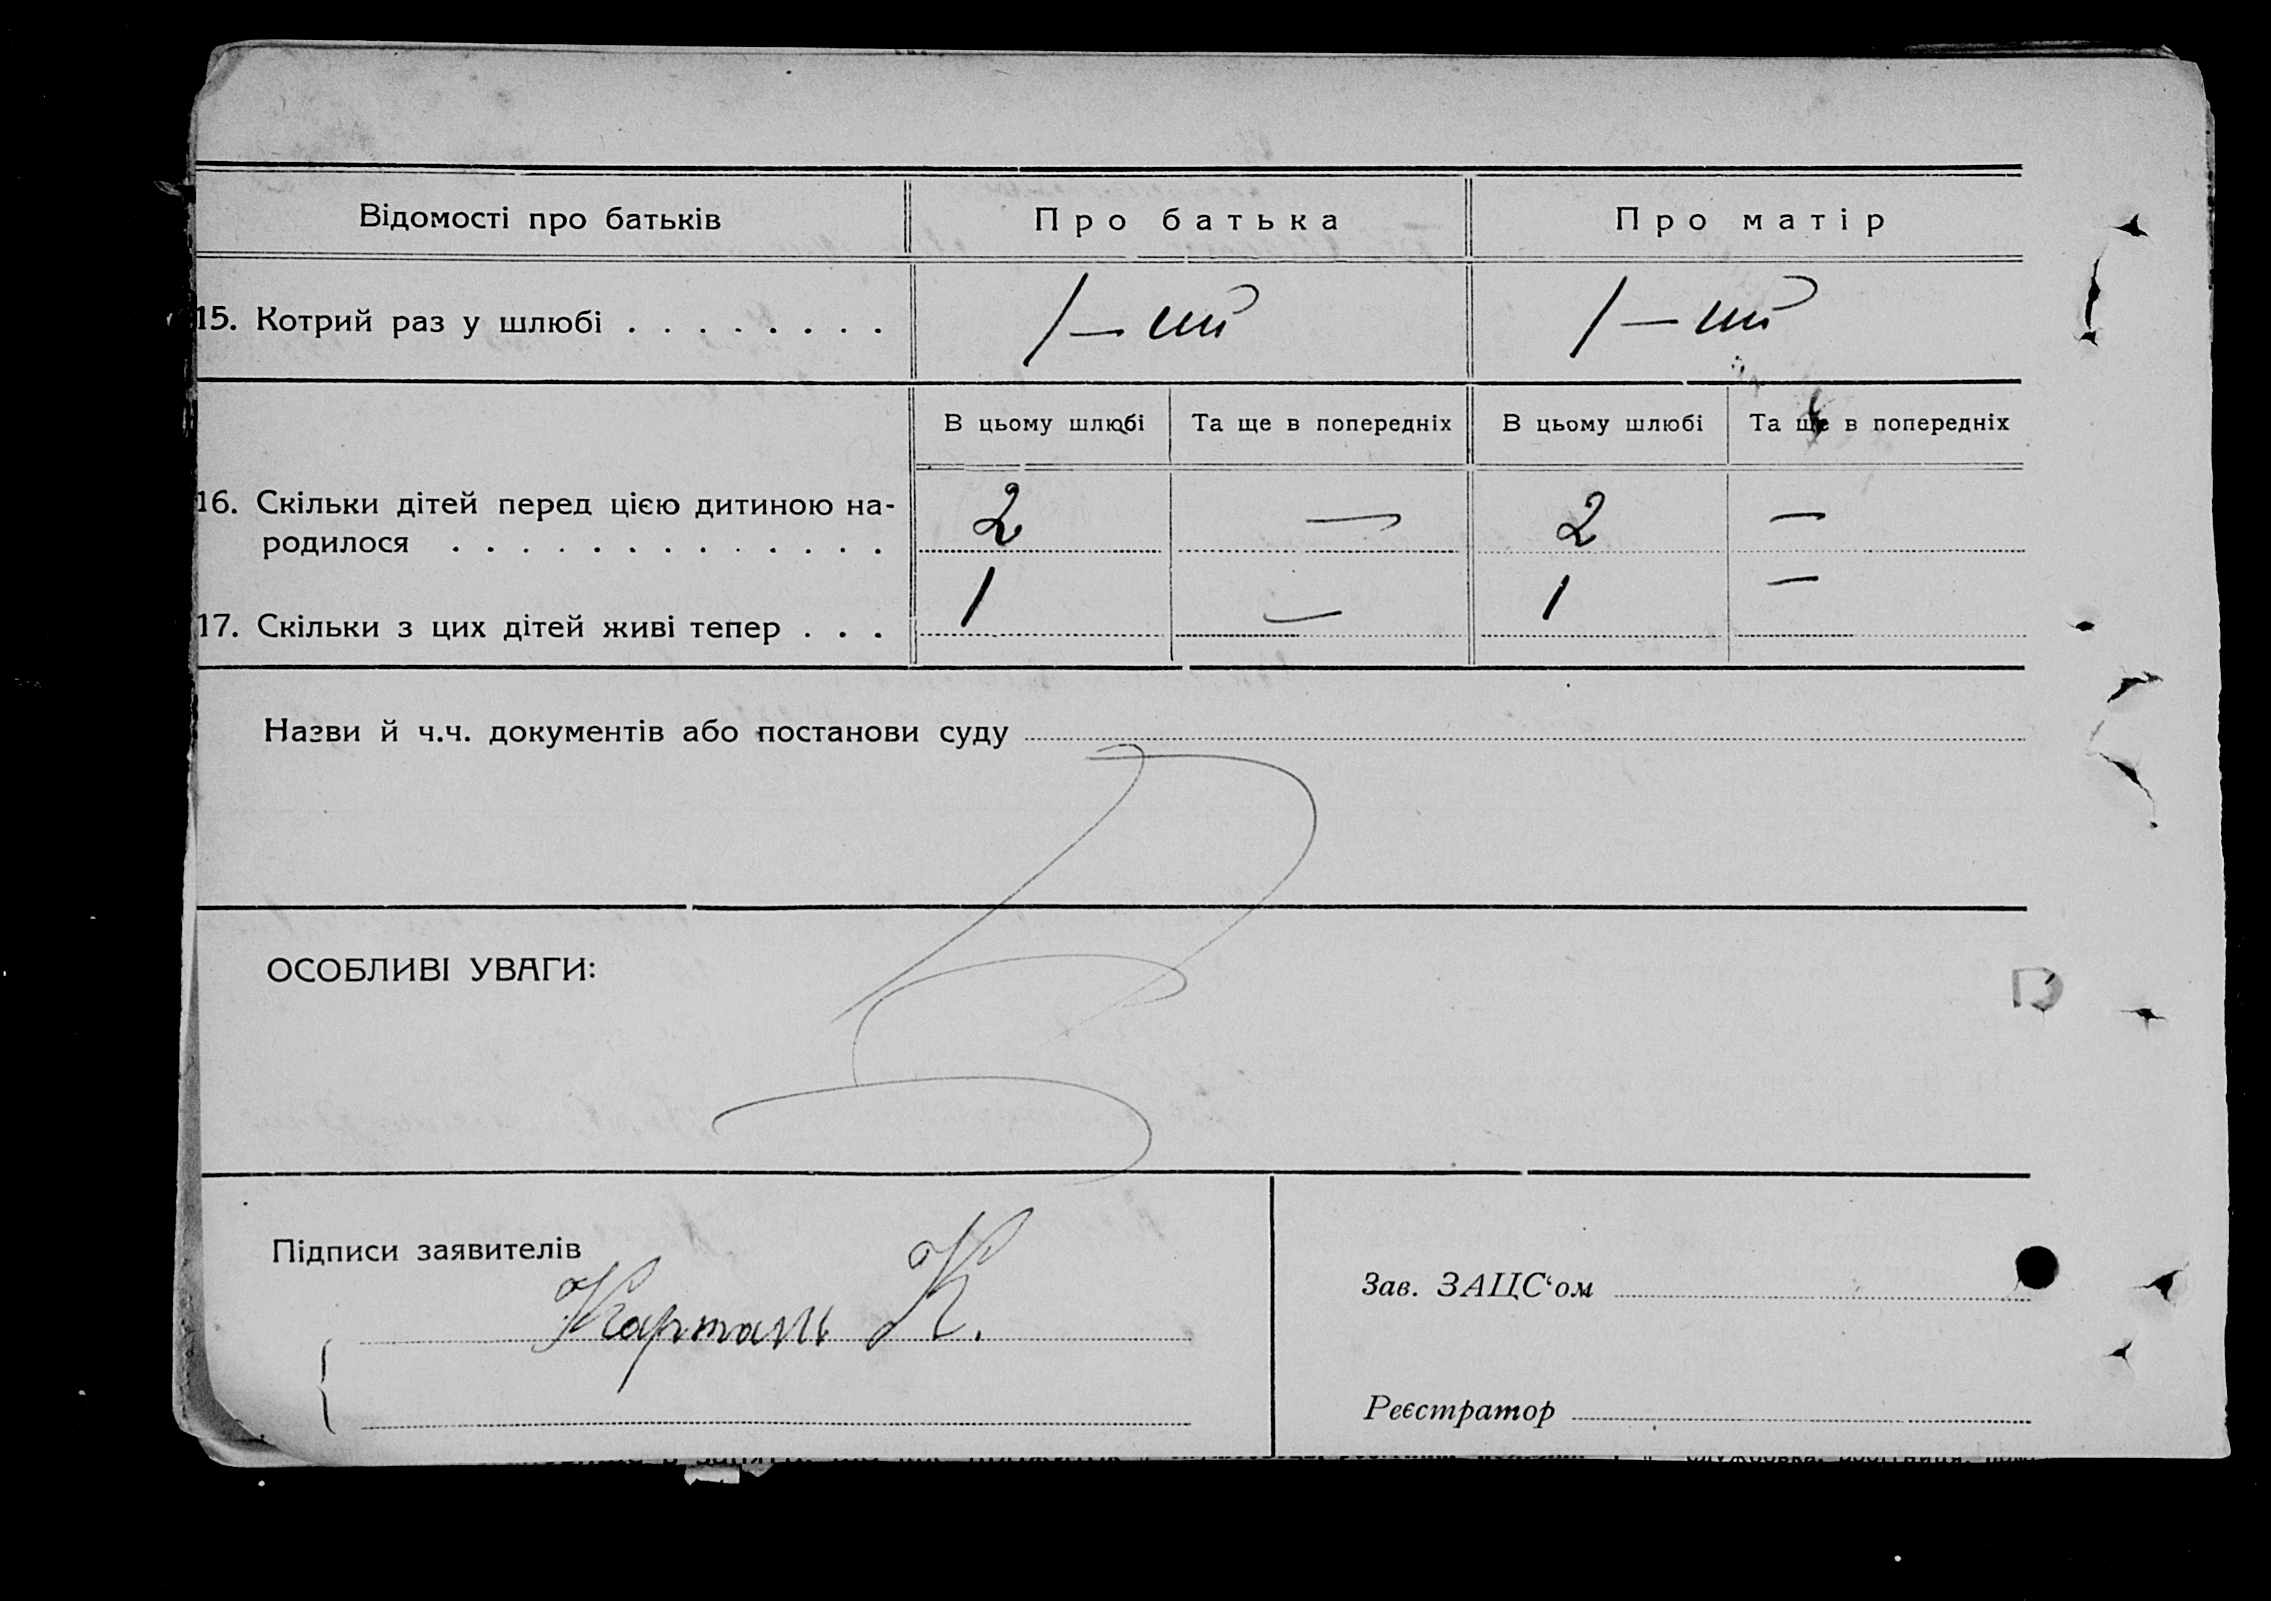 Відомості про батьків Про батька Про матір
15. Котрий раз у шлюбі . . . . . . . . 1–ий 1–ий
В цьому шлюбі Та ще в попередніх В цьому шлюбі Та ще в попередніх
16. Скільки дітей перед цією дитиною на-
родилося . . . . . . . . . . . . . 2 — 2 —
17. Скільки з цих дітей живі тепер . . . 1 — 1 —
Назви й ч.ч. документів або постанови суду
ОСОБЛИВІ УВАГИ:
Підписи заявителів
К.
Зав. ЗАЦС‘ом
Реєстратор